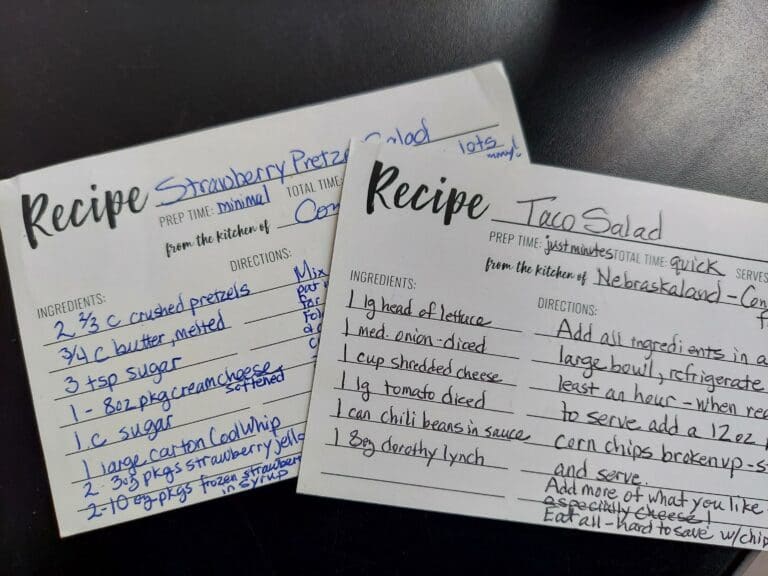 Recipe Strawberry Pretz Salad
lots
PREP TIME: minimal TOTAL TIME:
from the kitchen of Con
INGREDIENTS:
2 2/3 c crushed pretzels
3/4 c butter, melted
3 tsp sugar
1 - 8oz pkg cream cheese
softened
1 c sugar
1 large carton Cool Whip
2 - 3oz pkgs strawberry jello
2 - 10 oz pkgs frozen strawberr
in syrup
DIRECTIONS:
Mix
Recipe Taco Salad
PREP TIME: just minutes TOTAL TIME: quick SERVES
from the kitchen of Nebraskaland - Con
INGREDIENTS:
1 lg head of lettuce
1 med. onion - diced
1 cup shredded cheese
1 lg tomato diced
1 can chili beans in sauce
1 8oz dorothy lynch
DIRECTIONS:
Add all ingredients in a
large bowl, refrigerate
least an hour - when rea
to serve add a 12oz
corn chips broken up - s
and serve.
Add more of what you like
especially cheese!
Eat all - hard to save w/chip